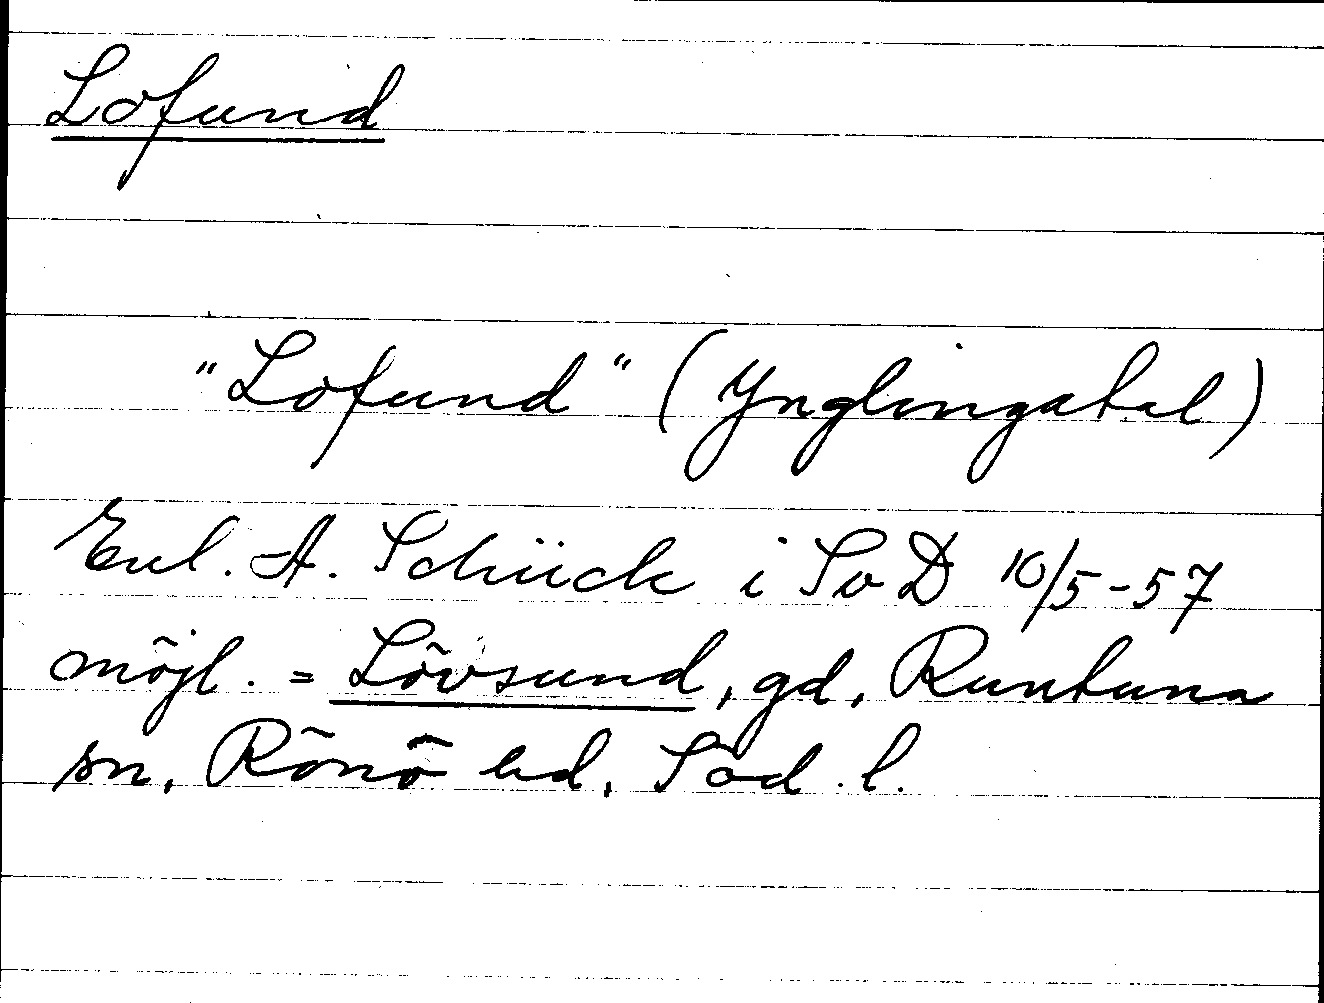 Lofund
"Lofund" (Ynglingatal)
Enl. A. Schück i SvD 10/5-57
möjl. = Lövsund, gd, Runtuna
sn, Rönö hd, Söd. l.